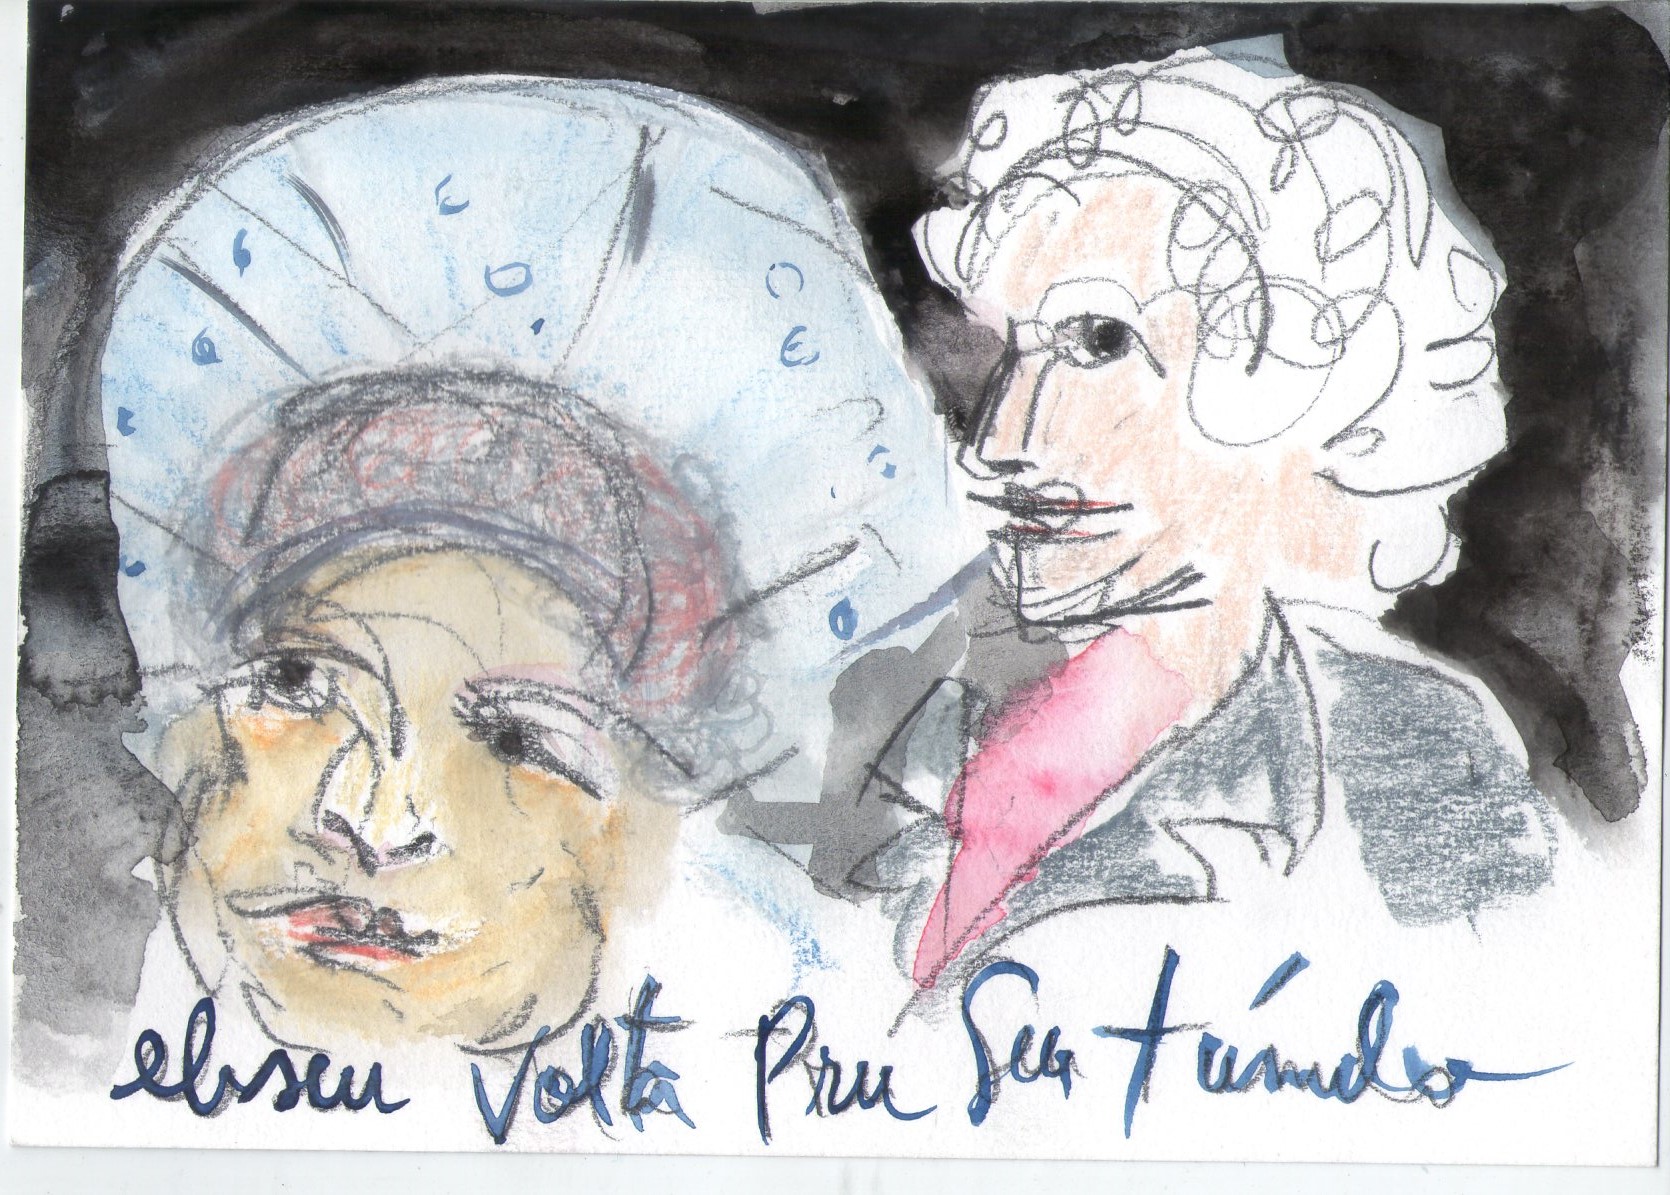 eliseu Volta Pru Seu túmulo